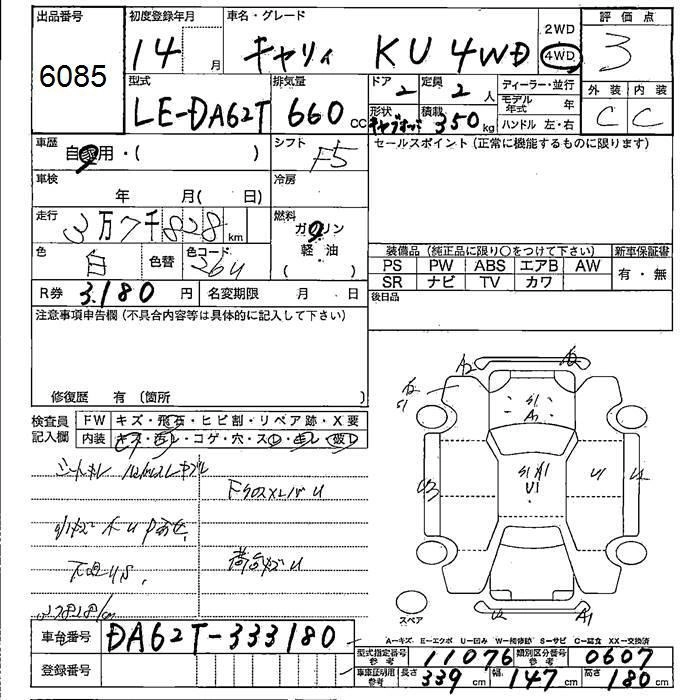 出品番号 初度登録年月 車名・グレード 2WD 評価点
6085 14 月 キャリィ KU 4WD 4WD 3
型式 排気量 ドア 定員 ディーラー・並行 外装 内装
LE-DA62T 660 CC 2 2 人 モデル年式 年 C C
形状 積載 350 kg ハンドル 左・右
車歴 自家用・( ) シフト F5 セールスポイント (正常に機能するものに限ります)
車検 年 月( 日) 冷房
走行 3万7千828 km 燃料 ガソリン
軽・油
( )
色 白 色替 色コード 26U 装備品 (純正品に限り○をつけて下さい) 新車保証書
PS PW ABS エアB AW 有・無
SR ナビ TV カワ
R券 3,180 円 名変期限 月 日 後日品
注意事項申告欄 (不具合内容等は具体的に記入して下さい)
修復歴 有 (箇所 )
検査員 記入欄 FW キズ・飛石・ヒビ割・リペア跡・X要
内装 キズ・汚レ・コゲ・穴・スレ・キレ・破レ
A2
S1
A1
U1
U3
U1
U2 A1
スペア
A―キズ E―エクボ U―凹み W―補修跡 S―サビ C―腐食 XX―交換済
車台番号 DA62T-333180 型式指定番号 参考 11076 類別区分番号 参考 0607
登録番号 車車証明用 参考 長さ 339 cm 幅 147 cm 高さ 180 cm